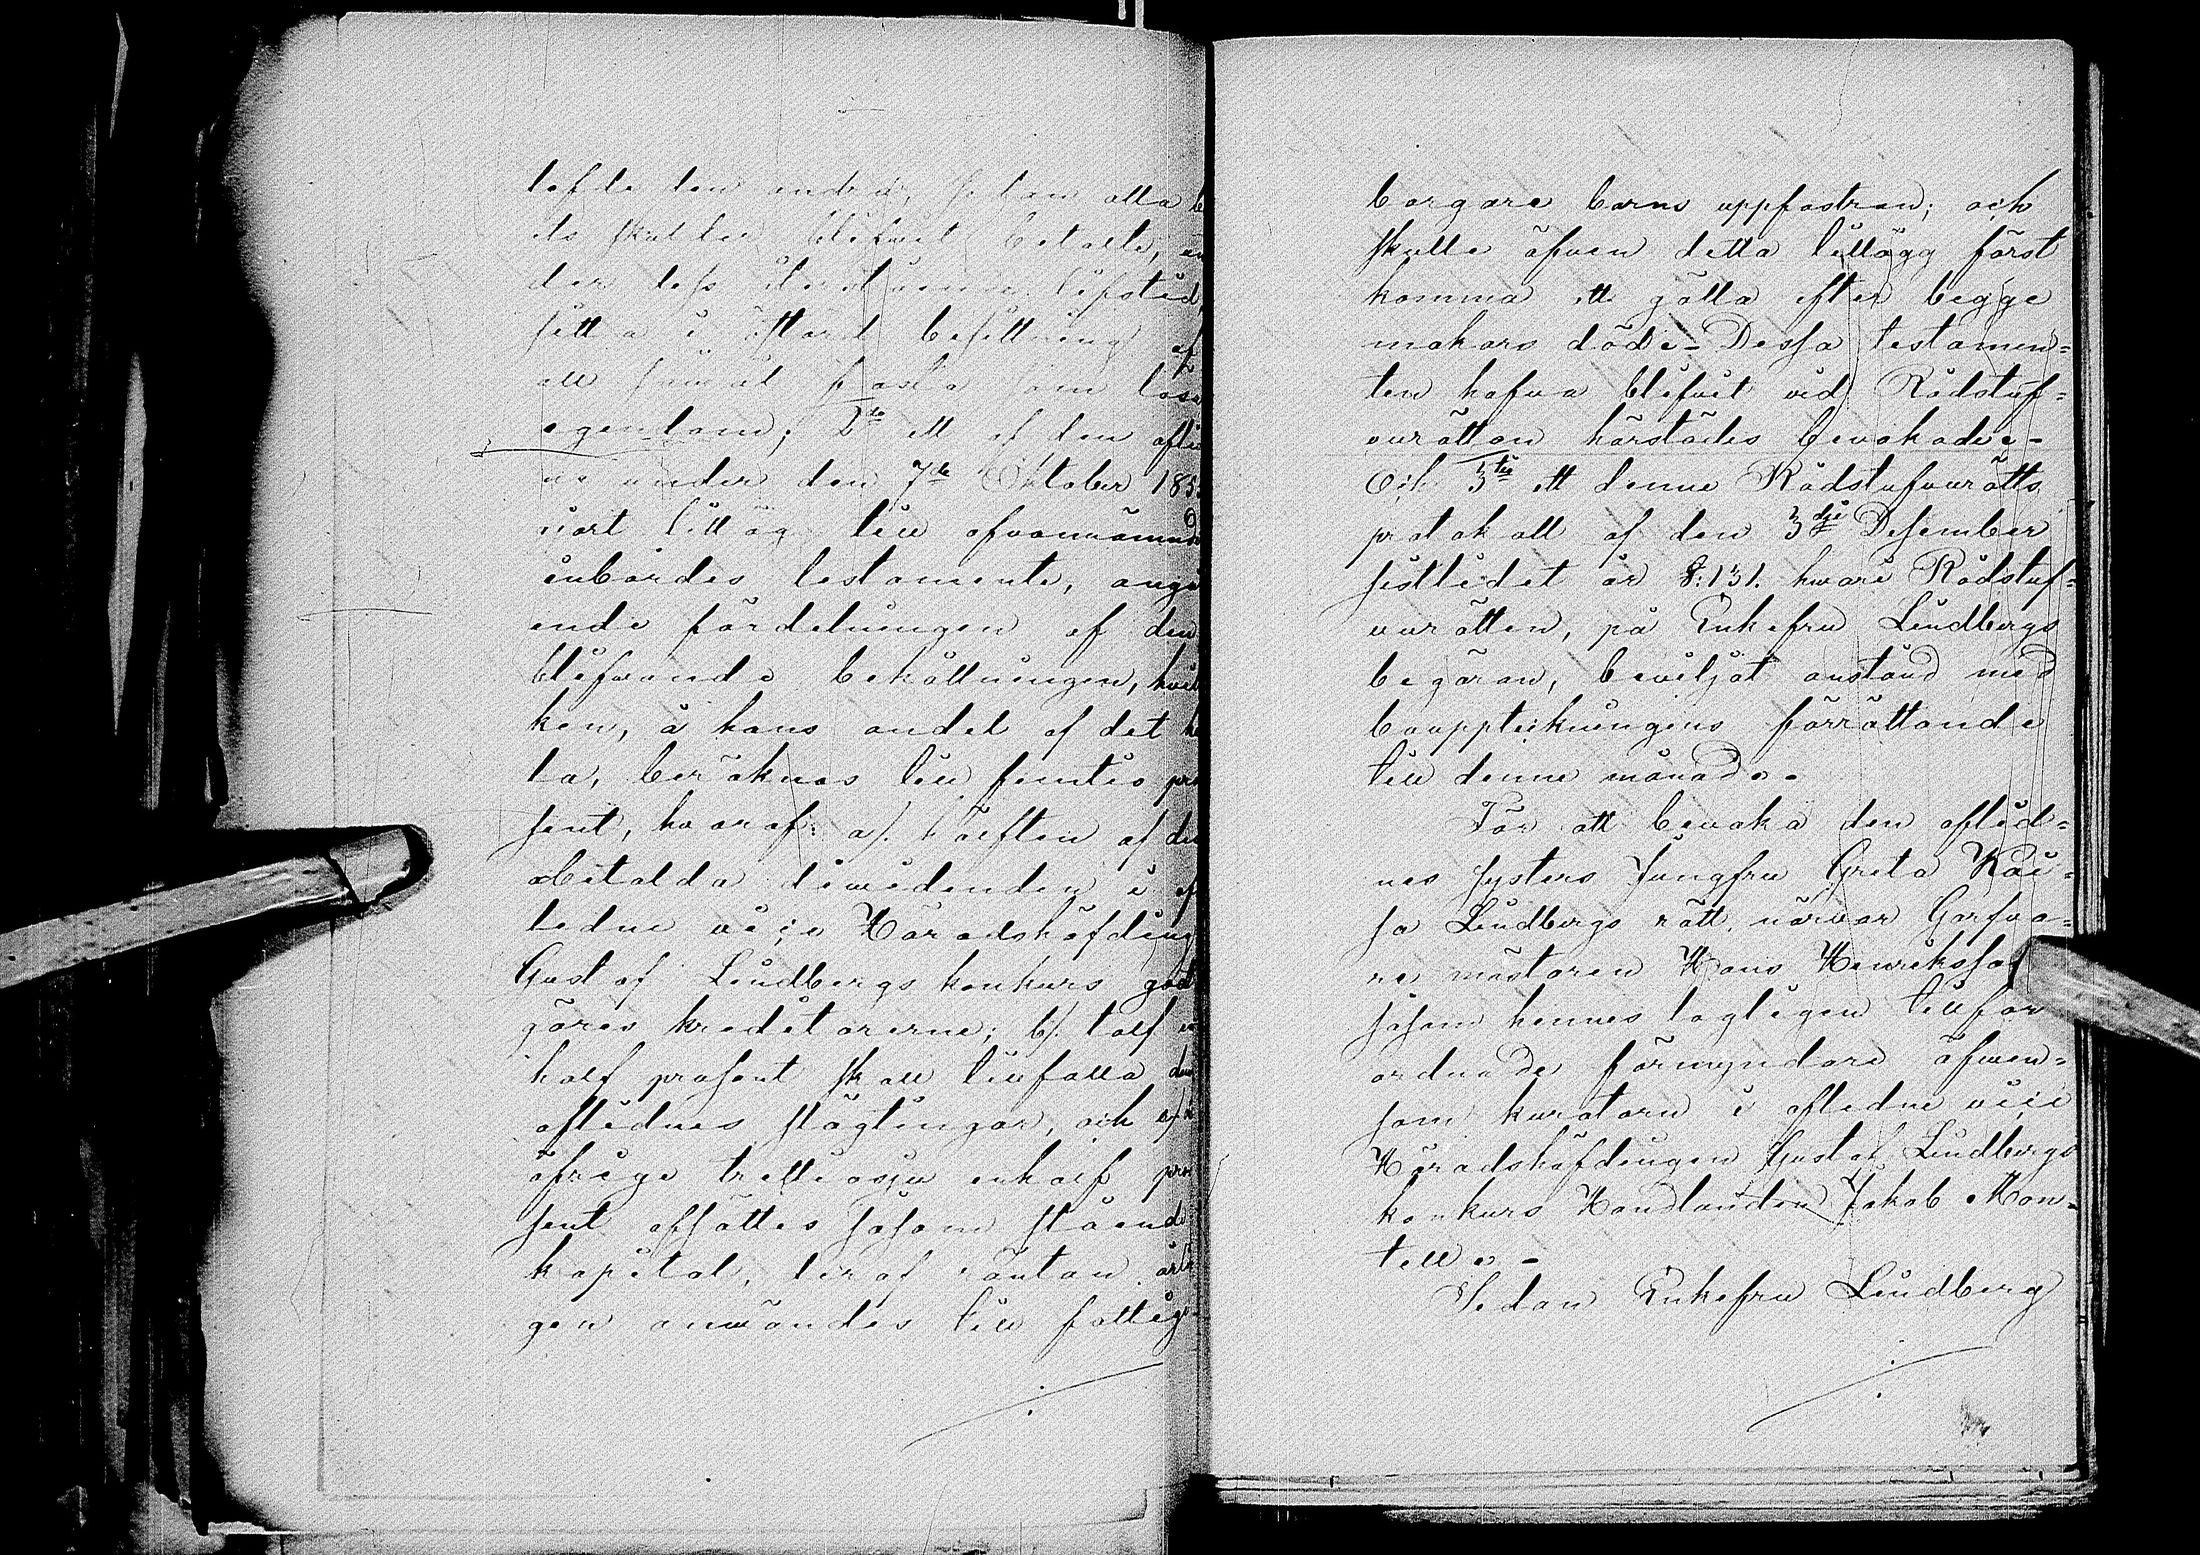 lefde den andra, sedan alla
ets skulder blifvit betalte, un
der dess återstående lifstid
sitta i ostörd besittning af
all såväl fasta som lösa
egendom; 2do ett af den aflid
ne under den 7de Oktober 185
gjort tillägg till ofvannämnde
inbördes testamente, angå
ende fördelningen af den
blifvande behållningen, hvil
ken, å hans andel af det he
la, beräknas till femtio pro
sent, hvaraf: a/. hälften af den
obetalda dividenden i af
ledne vice Häradshöfding
Gustaf Lindbergs konkurs god
göres kreditorerne; b/. tolf en
half prosent skall tillfalla den
aflidnes slägtingar, och af
öfrige trettiosju enhalf pro
sent afsättes såsom stående
kapital, deraf räntan årli
gen användes till fattige
borgare barns uppfostran; och
skulle äfven detta tillägg först
komma att gälla efter begge
makars död.- Dessa testamen=
ten hafva blifvit vid Rådstuf=
vurätten härstädes bevakade.-
Och 3tio ett denne Rådstufvurätts
protokoll af den 3dje Desember
sistlidet år §.131. hvari Rådstuf=
vurätten, på Enkefru Lindbergs
begäran, beviljat anstånd med
bouppteckningens förrättande
till denne månad.-
För att bevaka den aflid=
nes systers Jungfru Greta Kai=
sa Lindbergs rätt, närvar Garfva=
re mästaren Hans Henriksson
såsom hennes lagligen tillför
ordnade förmyndare äfven=
som kuratorn i aflidne vice
Häradshöfdingen Gustaf Lindbergs
konkurs Handlanden Jakob Mon=
tell.-
Sedan Enkefru Lindberg